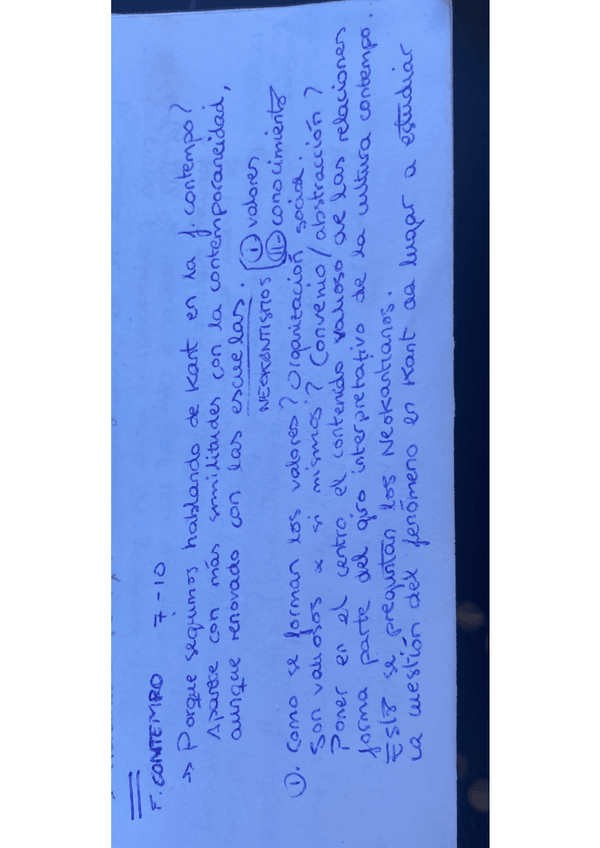 F. CONTEMPO 7-10
→ Porque seguimos hablando de Kant en la f. contempo?
Aparece con más similitudes con la contemporaneidad,
aunque renovado con las escuelas. ① valores
NEOKANTISMOS ② conocimiento
①. Como se forman los valores? Organización social.
Son valiosos x si mismos? Convenio/abstracción?
Poner en el centro el contenido valioso de las relaciones
forma parte del giro interpretativo de la cultura contempo.
Esto se preguntan los Neokantianos.
La cuestión del fenómeno en Kant da lugar a estudiar